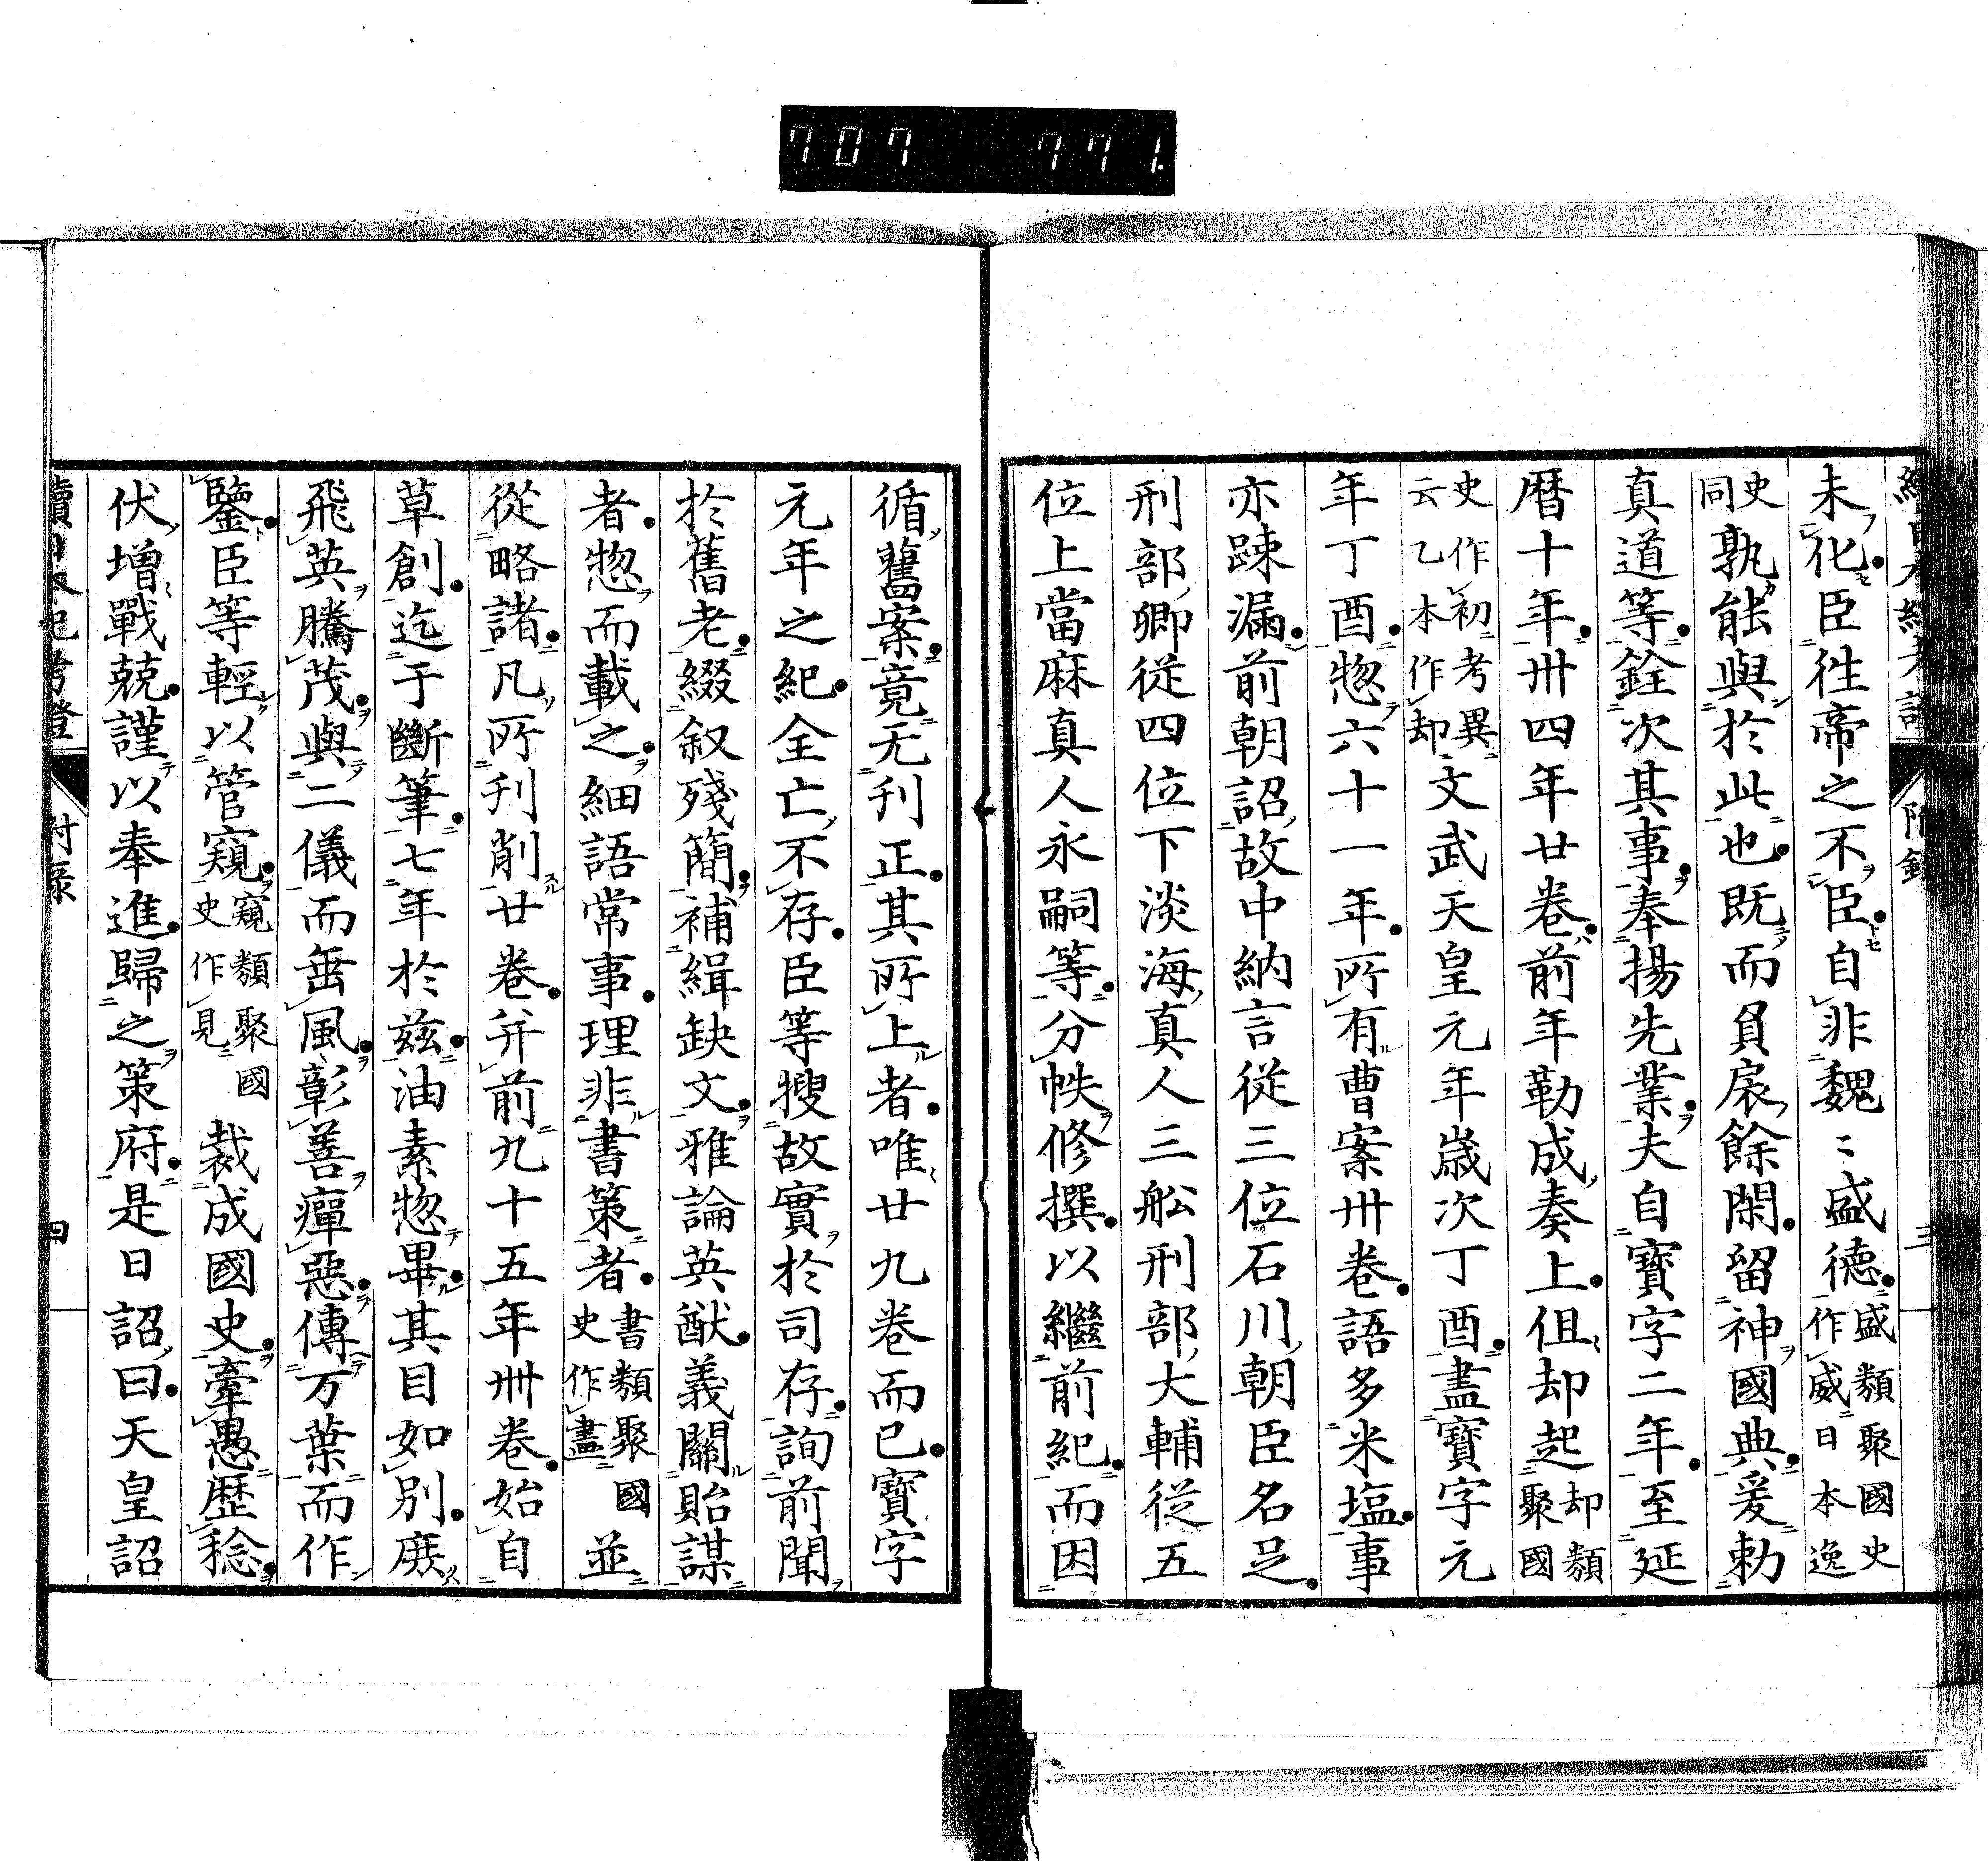 707 771
未化臣徃帝之不臣自非魏〻盛德盛類聚國史作威日本逸
史同孰能與於此也既而負扆餘閑留神國典爰勅
真道等銓次其事奉揚先業夫自寶字二年至延
暦十年卅四年廿卷前年勒成奏上伹却起却類聚國
史作初考異云乙本作却文武天皇元年歳次丁酉盡寶字元
年丁酉惣六十一年所有曹案卅卷語多米塩事
亦踈漏前朝詔故中納言從三位石川朝臣名足
刑部卿從四位下淡海真人三舩刑部大輔從五
位上當麻真人永嗣等分帙修撰以繼前紀而因
循舊案竟无刋正其所上者唯廿九卷而已寶字
元年之紀全亡不存臣等搜故實於司存詢前聞
於舊老綴叙殘簡補緝缺文雅論英猷義關貽謀
者惣而載之細語常事理非書策者書類聚國史作盡並
從略諸凡所刋削廿卷并前九十五年卌卷始自
草創迄于斷筆七年於兹油素惣畢其目如別庶
飛英騰茂與二儀而垂風彰善癉惡傳万葉而作
鑒臣等輕以管窺窺類聚國史作見裁成國史牽愚歷稔
伏增戰兢謹以奉進歸之策府是日詔曰天皇詔
附錄
四